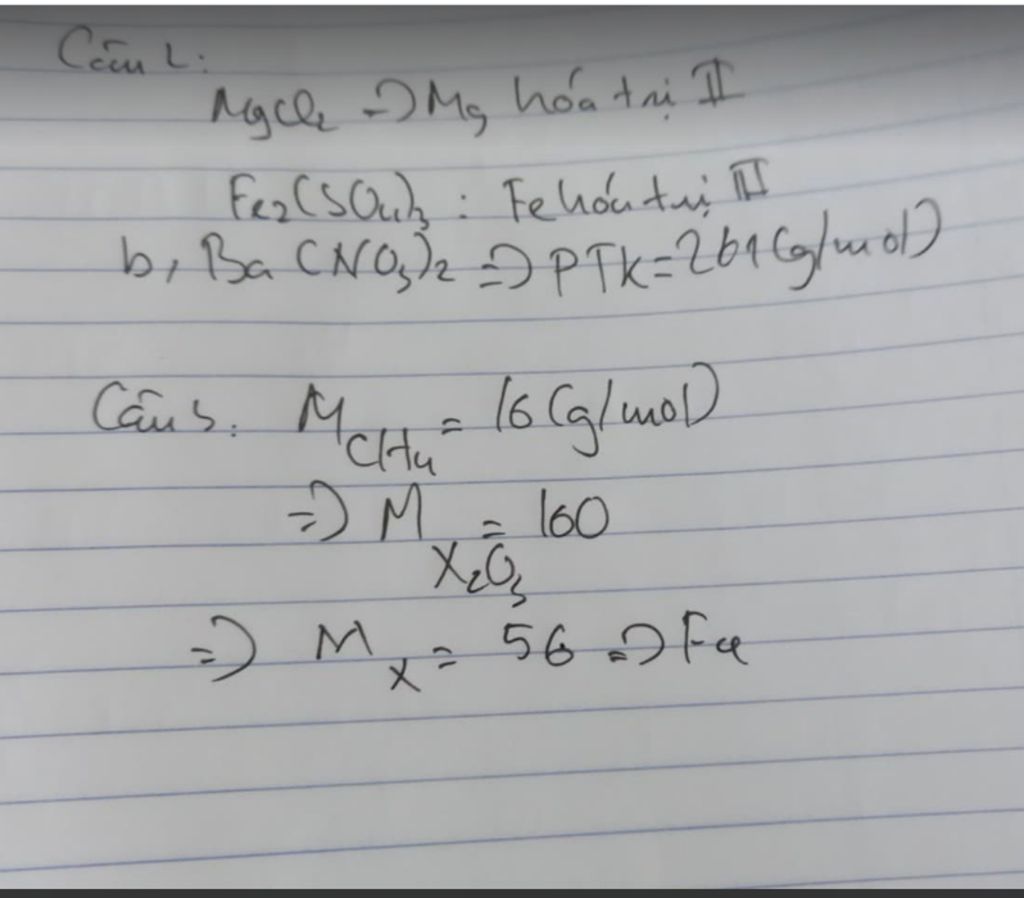 Câu 2:
MgCl₂ => Mg hóa trị II
Fe₂(SO₄)₃ : Fe hóa trị III
b, Ba(NO₃)₂ => PTK = 261 (g/mol)
Câu 3. M CH₄ = 16 (g/mol)
=> M X₂O₃ = 160
=> M X = 56 => Fe